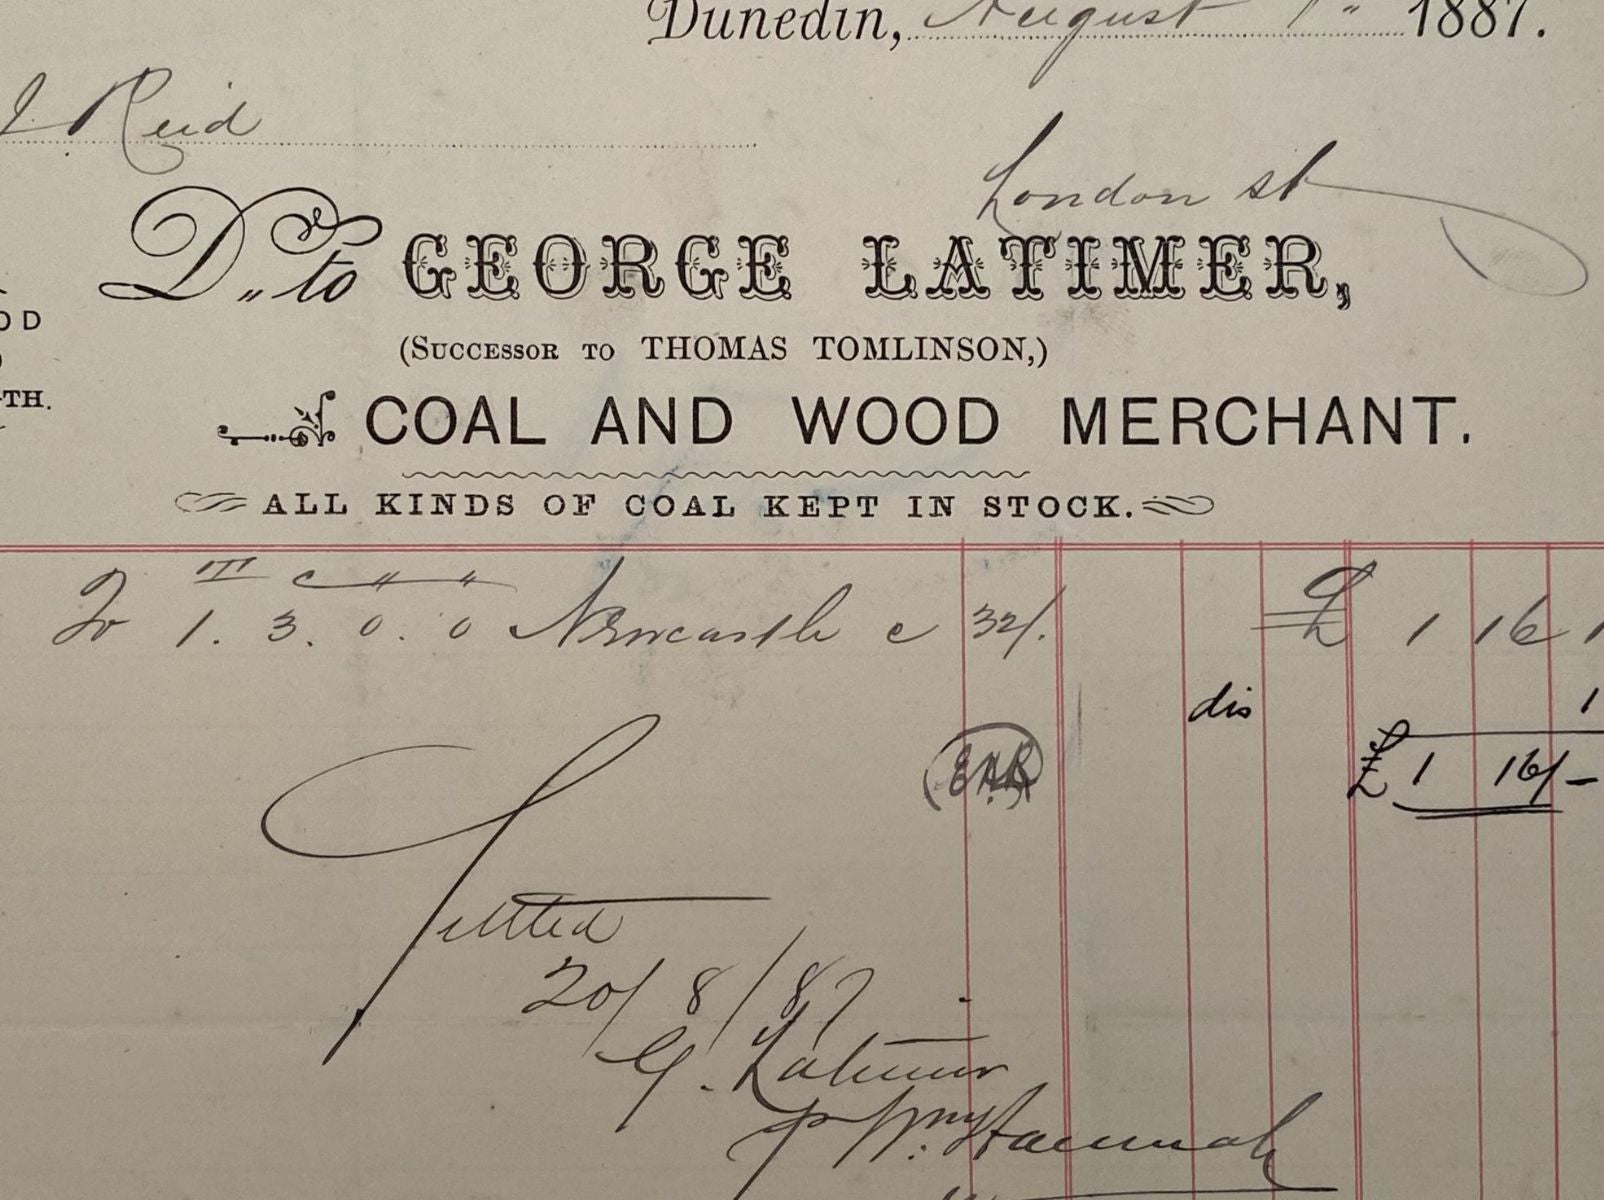 Dunedin, August 1887.
J Reid
London st
Dr. to GEORGE LATIMER,
OD
(SUCCESSOR TO THOMAS TOMLINSON,)
TH.
COAL AND WOOD MERCHANT.
ALL KINDS OF COAL KEPT IN STOCK.
T c " "
To 1. 3. 0. 0 Newcastle c 32/. £ 1 16 1
dis 1
£ 1 16/-
Settled
20/8/87
G. Latimer
p Wm Hannah